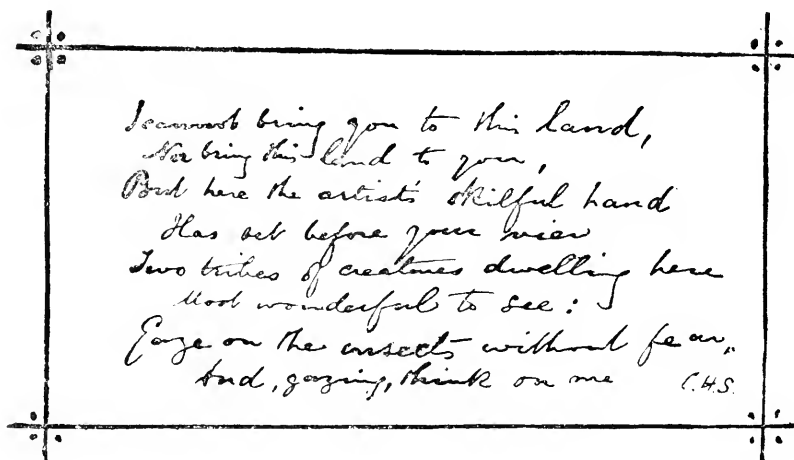 I cannot bring you to this land,
Nor bring this land to you,
But here the artist's skilful hand
Has set before your view
Two tribes of creatures dwelling here
Most wonderful to see:
Gaze on the insects without fear,
And, gazing, think on me C.H.S.